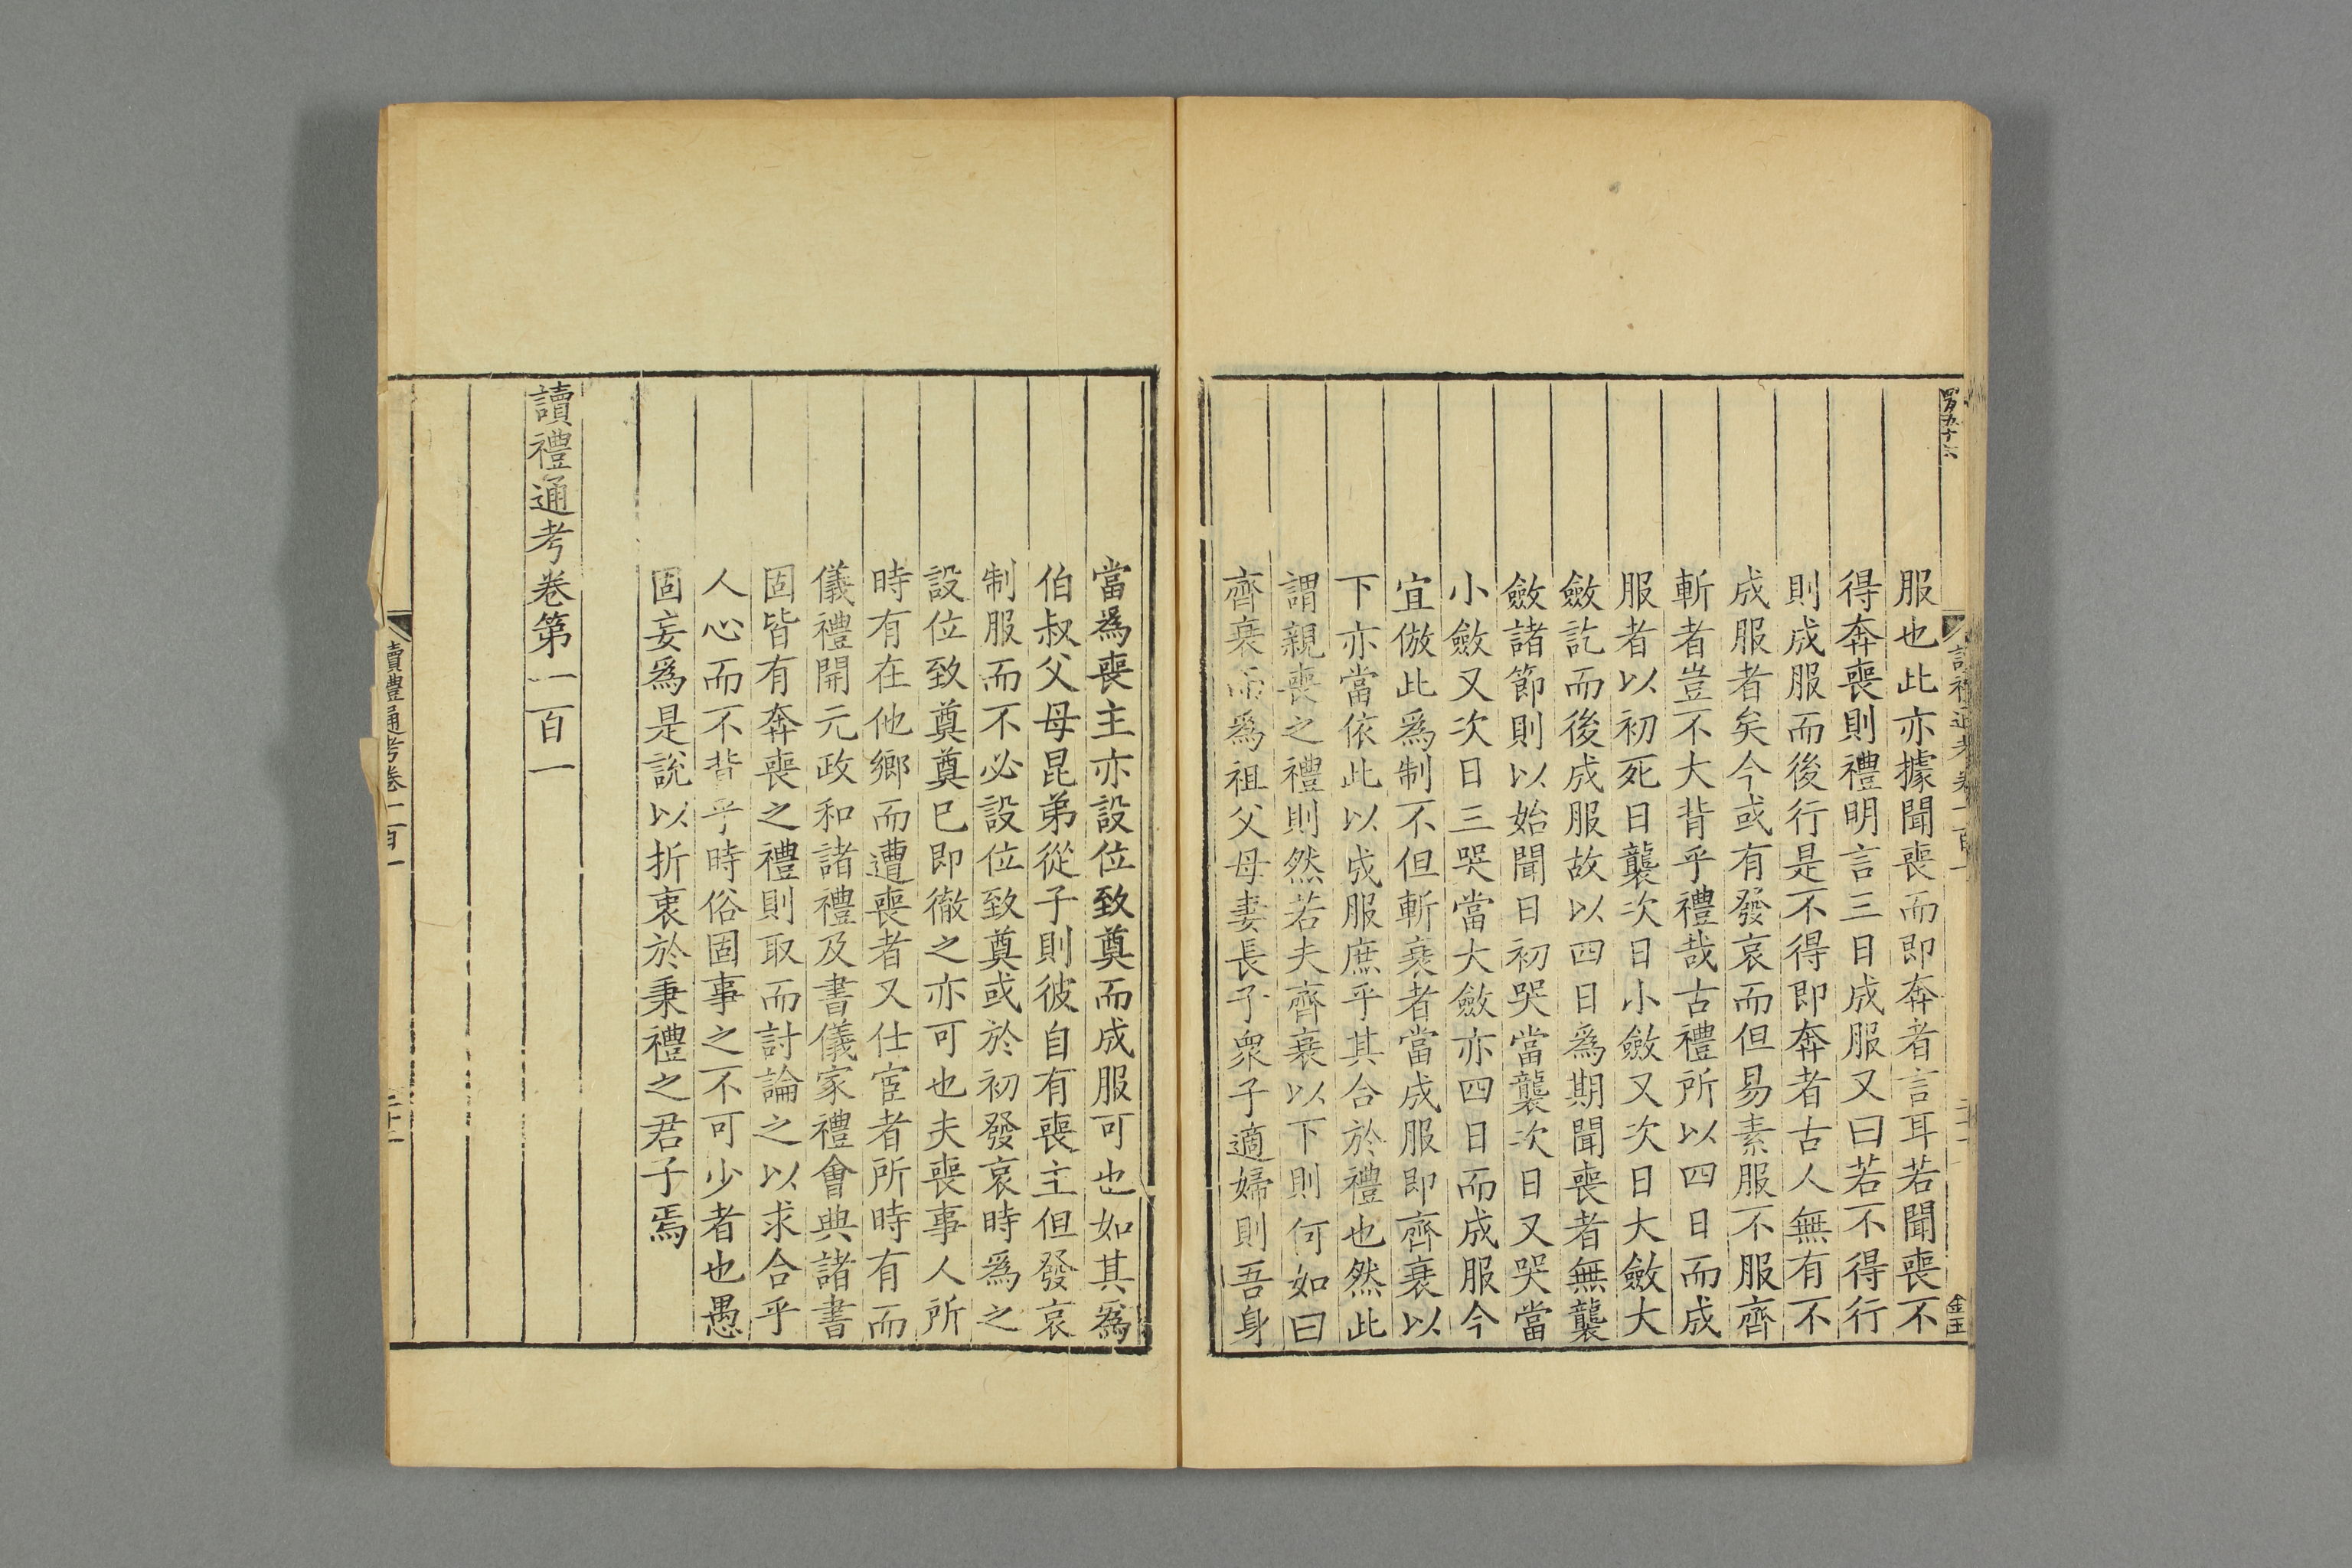 四百五十六
讀禮通考卷一百一
二十一
金玉
服也此亦據聞喪而即奔者言耳若聞喪不
得奔喪則禮明言三日成服又曰若不得行
則成服而後行是不得即奔者古人無有不
成服者矣今或有發哀而但易素服不服齊
斬者豈不大背乎禮哉古禮所以四日而成
服者以初死日襲次日小斂又次日大斂大
斂訖而後成服故以四日為期聞喪者無襲
斂諸節則以始聞日初哭當襲次日又哭當
小斂又次日三哭當大斂亦四日而成服今
宜倣此為制不但斬衰者當成服即齊衰以
下亦當依此以成服庶乎其合於禮也然此
謂親喪之禮則然若夫齊衰以下則何如曰
齊衰而為祖父母妻長子衆子適婦則吾身
當為喪主亦設位致奠而成服可也如其為
伯叔父母昆弟從子則彼自有喪主但發哀
制服而不必設位致奠或於初發哀時為之
設位致奠奠已即徹之亦可也夫喪事人所
時有在他鄉而遭喪者又仕宦者所時有而
儀禮開元政和諸禮及書儀家禮會典諸書
固皆有奔喪之禮則取而討論之以求合乎
人心而不背乎時俗固事之不可少者也愚
固妄為是說以折衷於秉禮之君子焉
讀禮通考卷第一百一
讀禮通考卷一百一
二十二